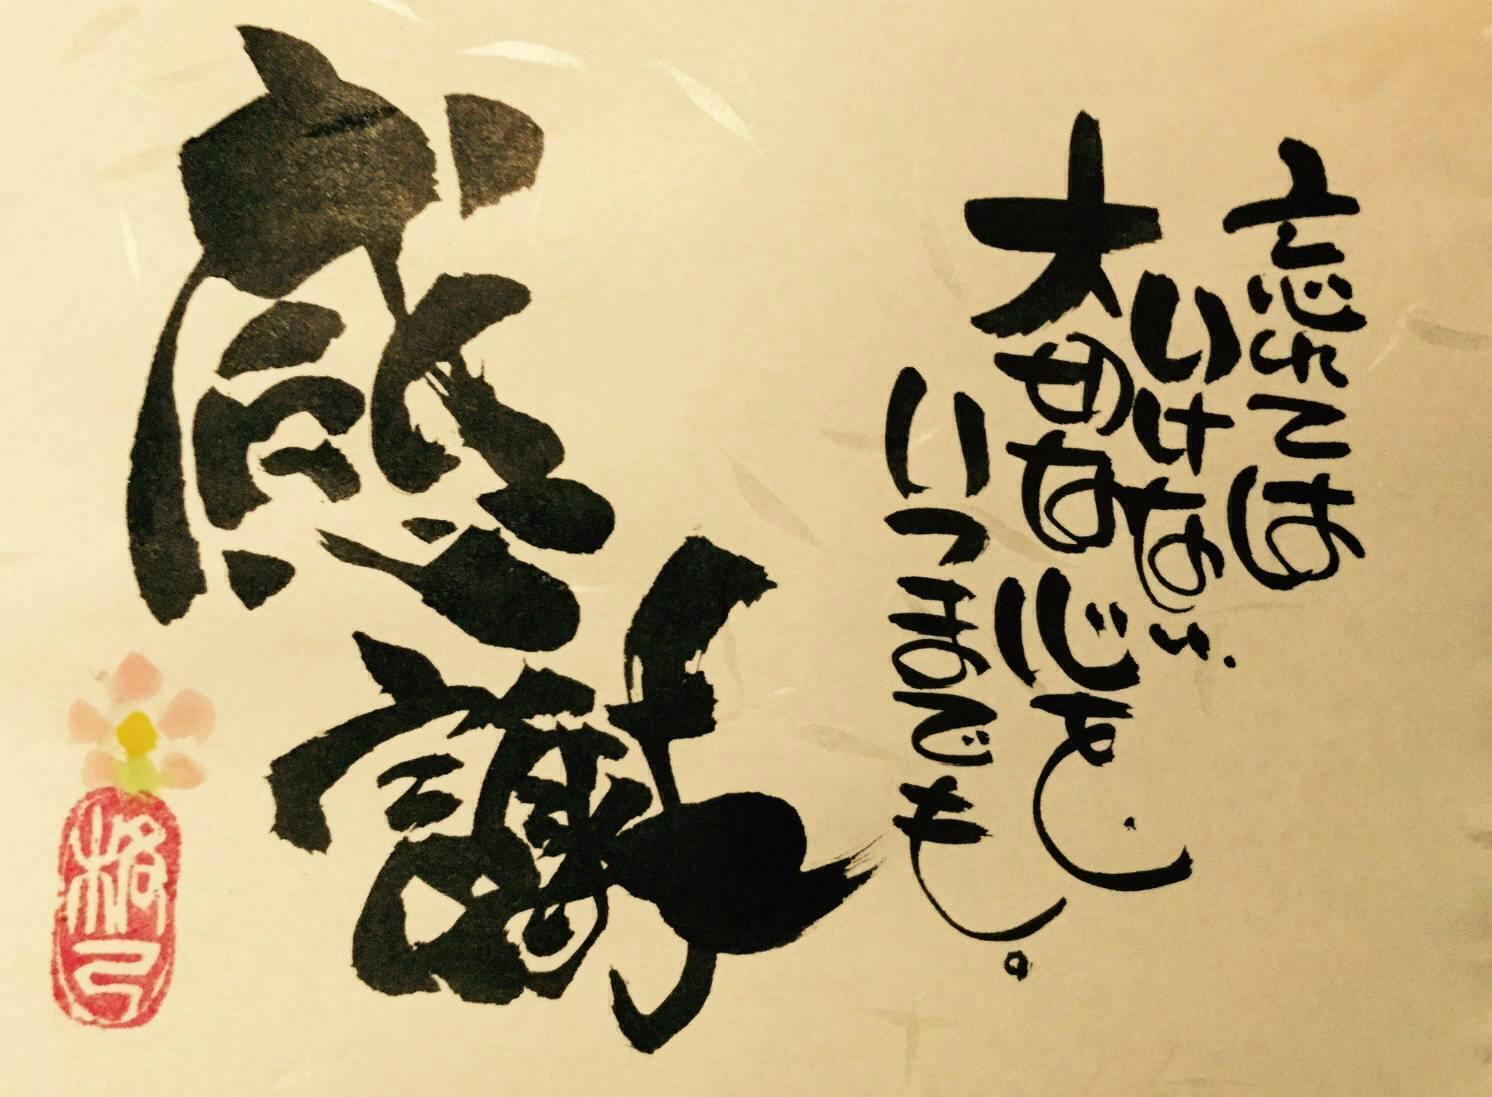 忘れては
いけない
大切な心を
いつまでも。
感謝